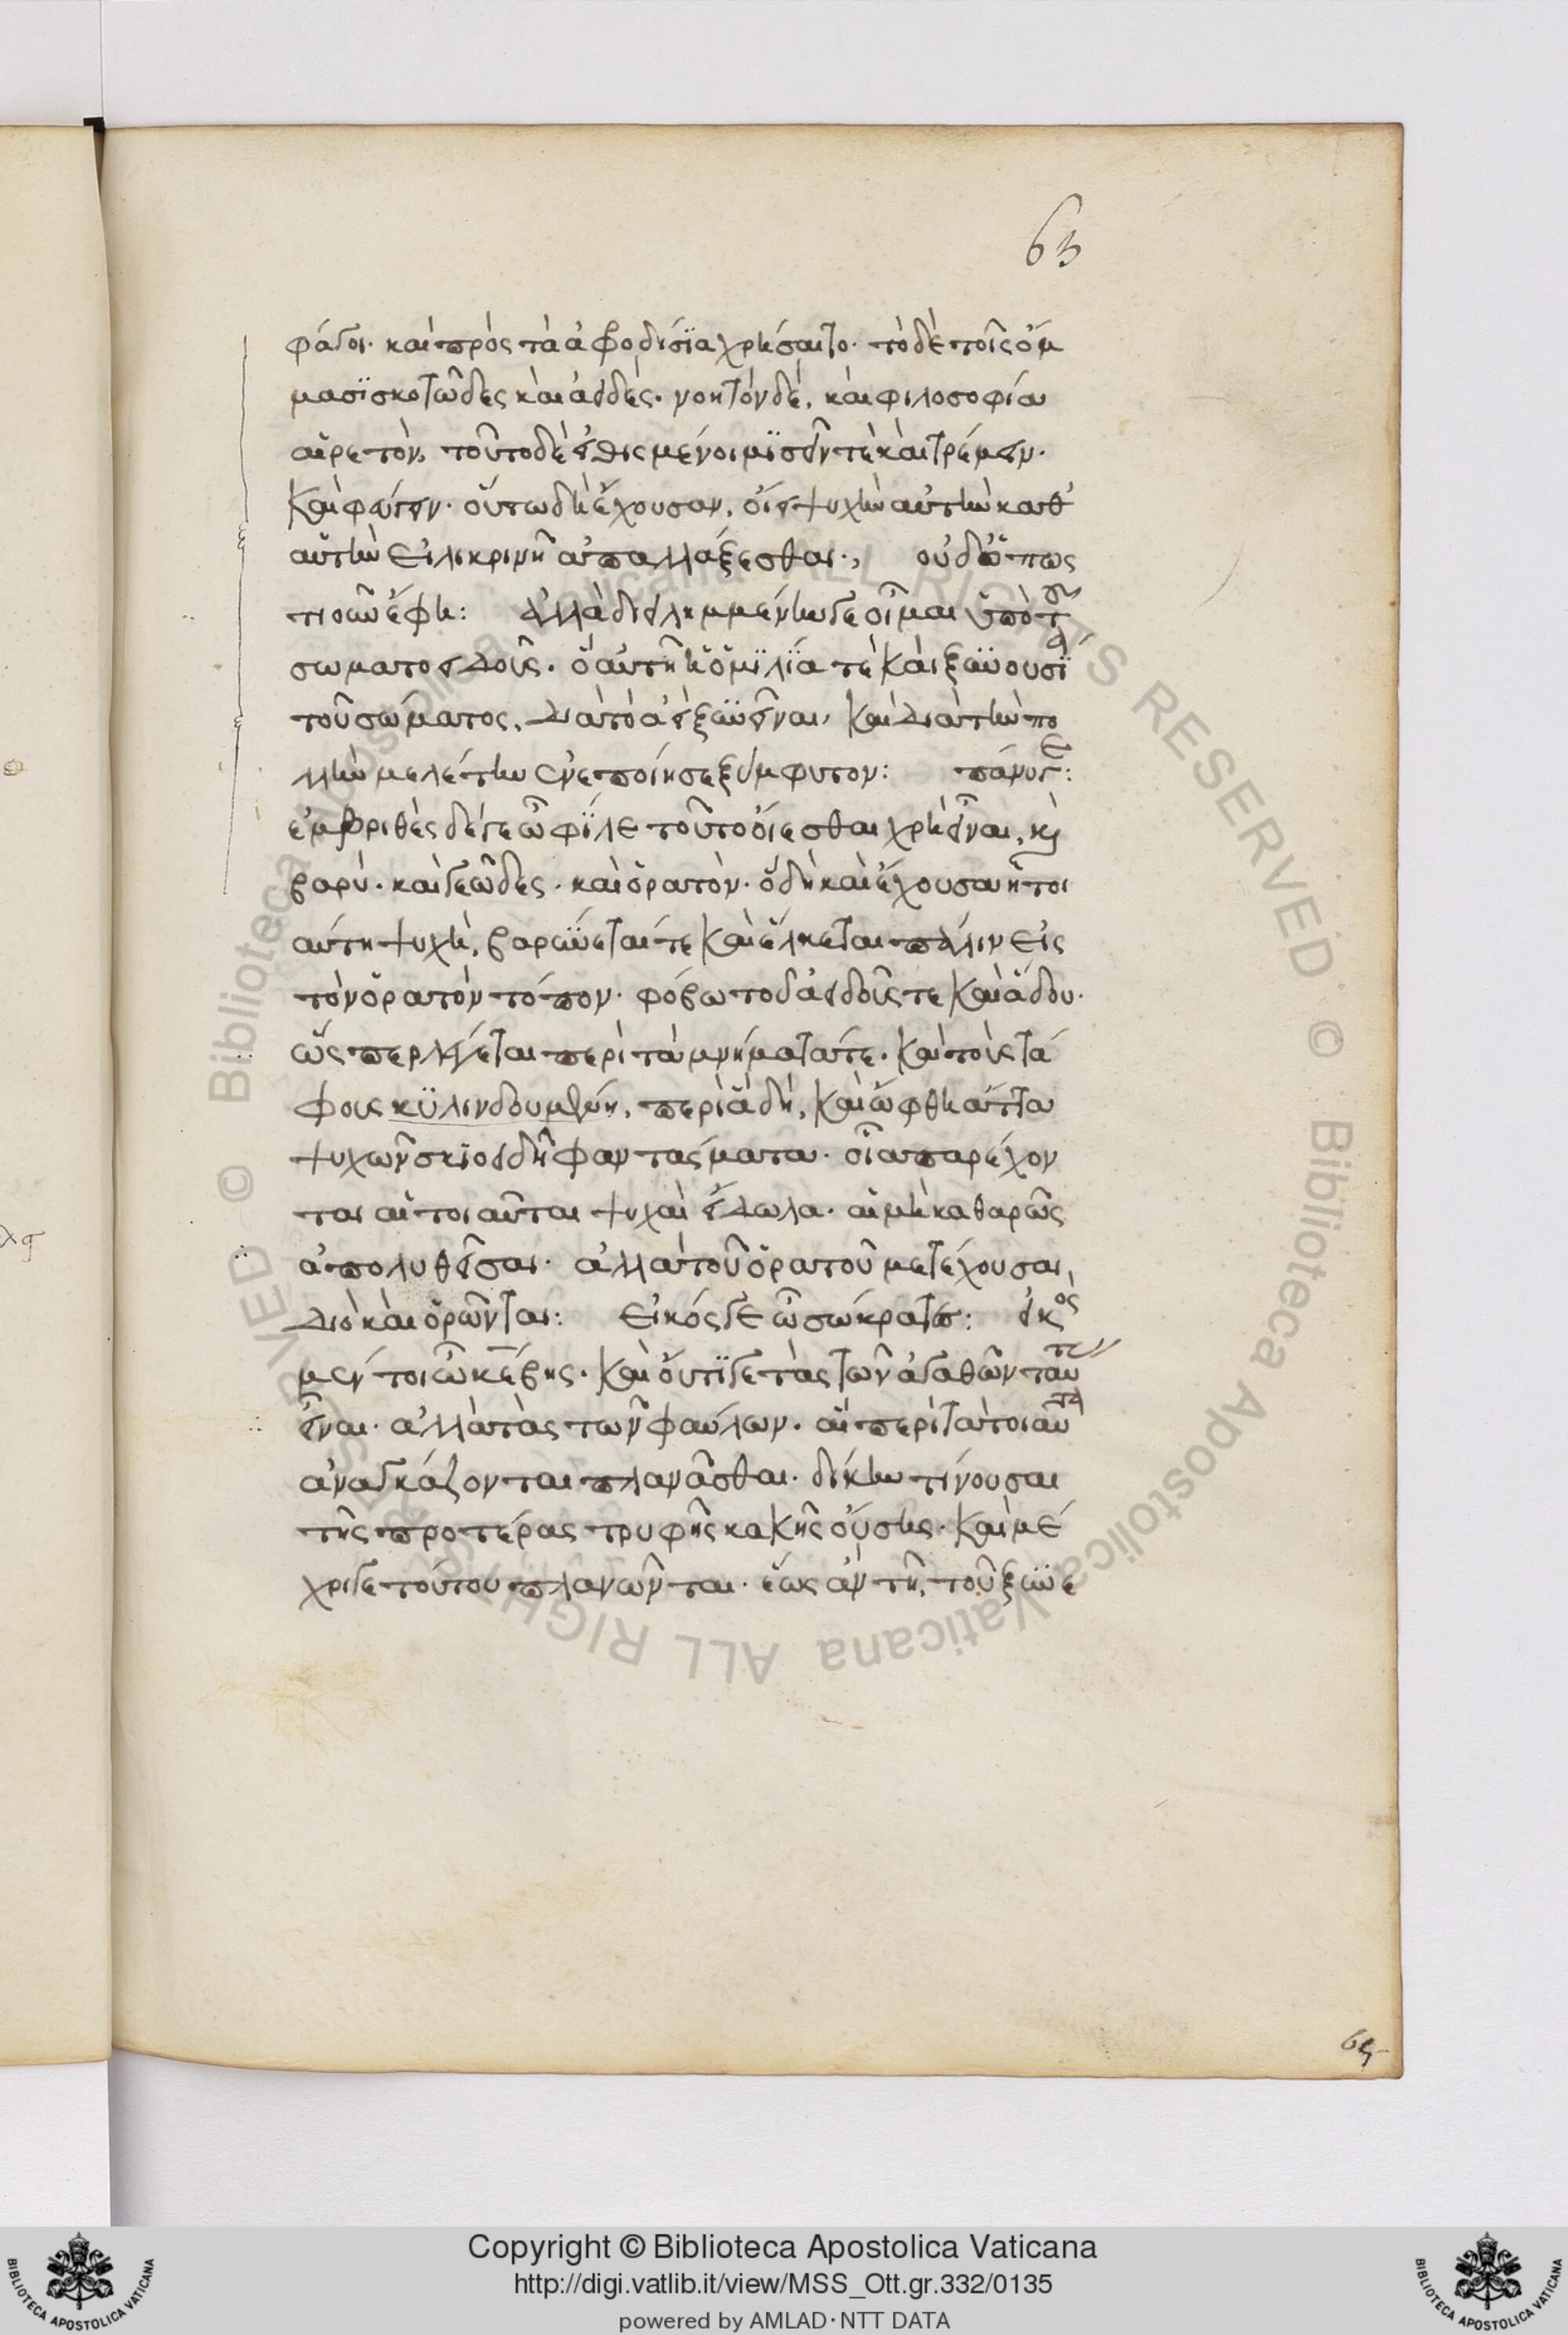 63
φάγοι· καὶ πρὸς τὰ ἀφροδίσϊα χρήσαιτο· τὸ δὲ τοῖς ὄμ
μασϊ σκοτῶδες καὶ ἀειδές· νοητὸν δέ, καὶ φιλοσοφία
αἱρετὸν, τοῦτο δὲ εἰθισμένοι μϊσεῖν τὲ καὶ τρέμειν·
καὶ φεύγειν· οὕτω δὴ ἔχουσαν, οἴει ψυχὴν αὐτὴν καθ'
αὑτὴν εἰλικρινῆ ἀπαλλάξεσθαι·, οὐδ' ὅπως
τιοῦν ἔφη: ἀλλὰ διειλημμένην γε οἶμαι ὑπὸ τοῦ
σωματοειδοῦς· ὃ αὐτῇ ἡ ὁμϊλία τὲ καὶ ξυνουσΐα
τοῦ σώματος, διὰ τὸ ἀεὶ ξυνεῖναι, καὶ διὰ τὴν πο
λλὴν μελέτην ἐνεποίησε ξύμφυτον: πάνυ γε:
ἐμβριθὲς δέ γε ὦ φΐλε τοῦτο οἴεσθαι χρὴ εἶναι, κὶ
βαρὺ· καὶ γεῶδες· καὶ ὁρατὸν· ὃ δὴ καὶ ἔχουσα ἡ τοι
αύτη ψυχὴ, βαρύνεταί τε καὶ ἕλκεται πάλιν εἰς
τὸν ὁρατὸν τόπον· φόβω τοῦ ἀειδοῦς τε καὶ ἅδου·
ὥσπερ λέγεται περὶ τὰ μνήματά τε· καὶ τοὺς τά
φους κϋλινδουμένη, περὶ ἃ δὴ, καὶ ὤφθη ἄττα
ψυχῶν σκϊοειδῆ φαντάσματα· οἷα παρέχον
ται αἱ τοιαῦται ψυχαὶ εἴδωλα· αἱ μὴ καθαρῶς
ἀπολυθεῖσαι· ἀλλὰ τοῦ ὁρατοῦ μετέχουσαι,
διὸ καὶ ὁρῶνται: εἰκός γε ὦ σώκρατες: εἰκὸς
μέν τοι ὦ κέβης· καὶ οὔ τϊ γε τὰς τῶν ἀγαθῶν ταύτας
εἶναι· ἀλλὰ τὰς τῶν φαύλων· αἳ περὶ τὰ τοιαῦτα
ἀναγκάζονται πλανᾶσθαι· δίκην τίνουσαι
τῆς προτέρας τρυφῆς κακῆς οὔσης· καὶ μέ
χρι γε τούτου πλανῶνται· ἕως ἂν τῇ, τοῦ ξυνε
65
Copyright © Biblioteca Apostolica Vaticana
http://digi.vatlib.it/view/MSS_Ott.gr.332/0135
powered by AMLAD·NTT DATA